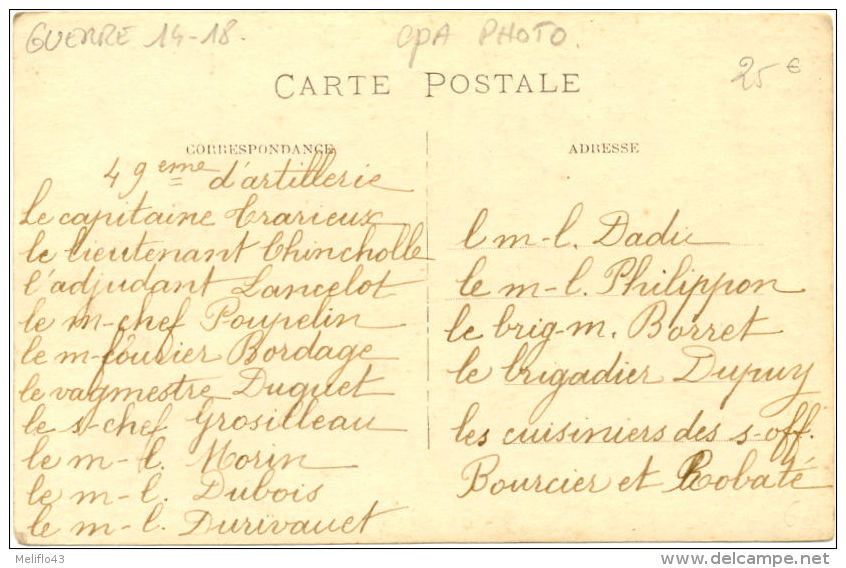 GUERRE 14-18.
CPA PHOTO.
25 €
CARTE POSTALE
CORRESPONDANCE
49eme d'artillerie
Le capitaine Trarieux
le lieutenant Chincholle
l'adjudant Lancelot
le m-chef Poupelin
le m-fourier Bordage
le vagmestre Duguet
le s-chef Grosilleau
le m-l. Morin
le m-l. Dubois
le m-l. Durivauet
ADRESSE
l m-l. Dadu
le m-l. Philippon
le brig-m. Borret
le brigadier Dupuy
les cuisiniers des s-off.
Bourcier et Robaté
Meliflo43
www.delcampe.net